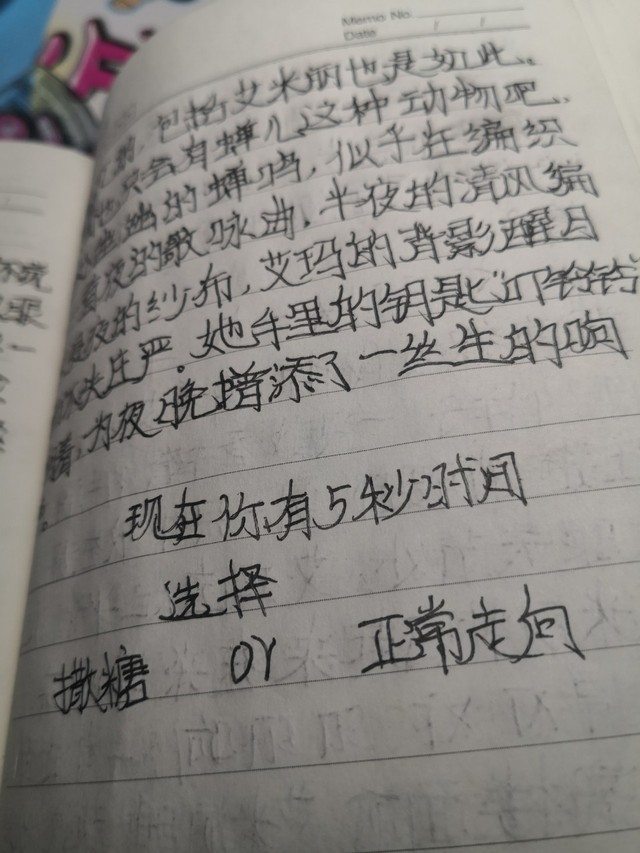 Memo No.
Date / /
的,包括艾米丽也是如此。
也只会有蝉儿这种动物吧。
幽的蝉鸣,似乎在编织
夏夜的歌咏曲,半夜的清风编
夜的纱布,艾玛的背影醒目
庄严。她手里的钥匙“叮铃铃
着,为夜晚增添了一丝生的响
现在你有5秒时间
选择
撒糖 or 正常走向